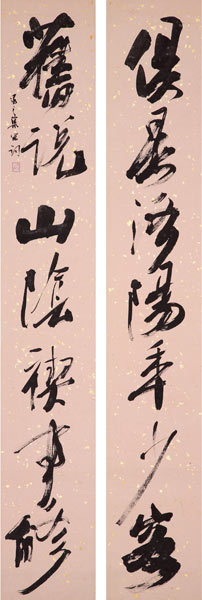 俱是洛陽年少客
舊說山陰禊事修